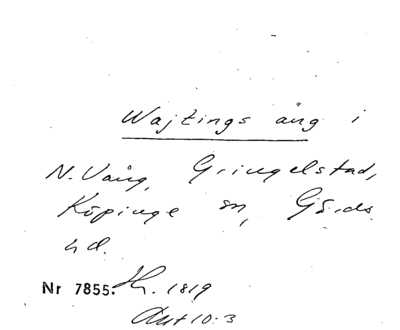 Wajtings äng i
N. Vång, Gringelstad,
Köpinge sn, Gärds
hd.
Nr 7855. H. 1819
Akt 10:3